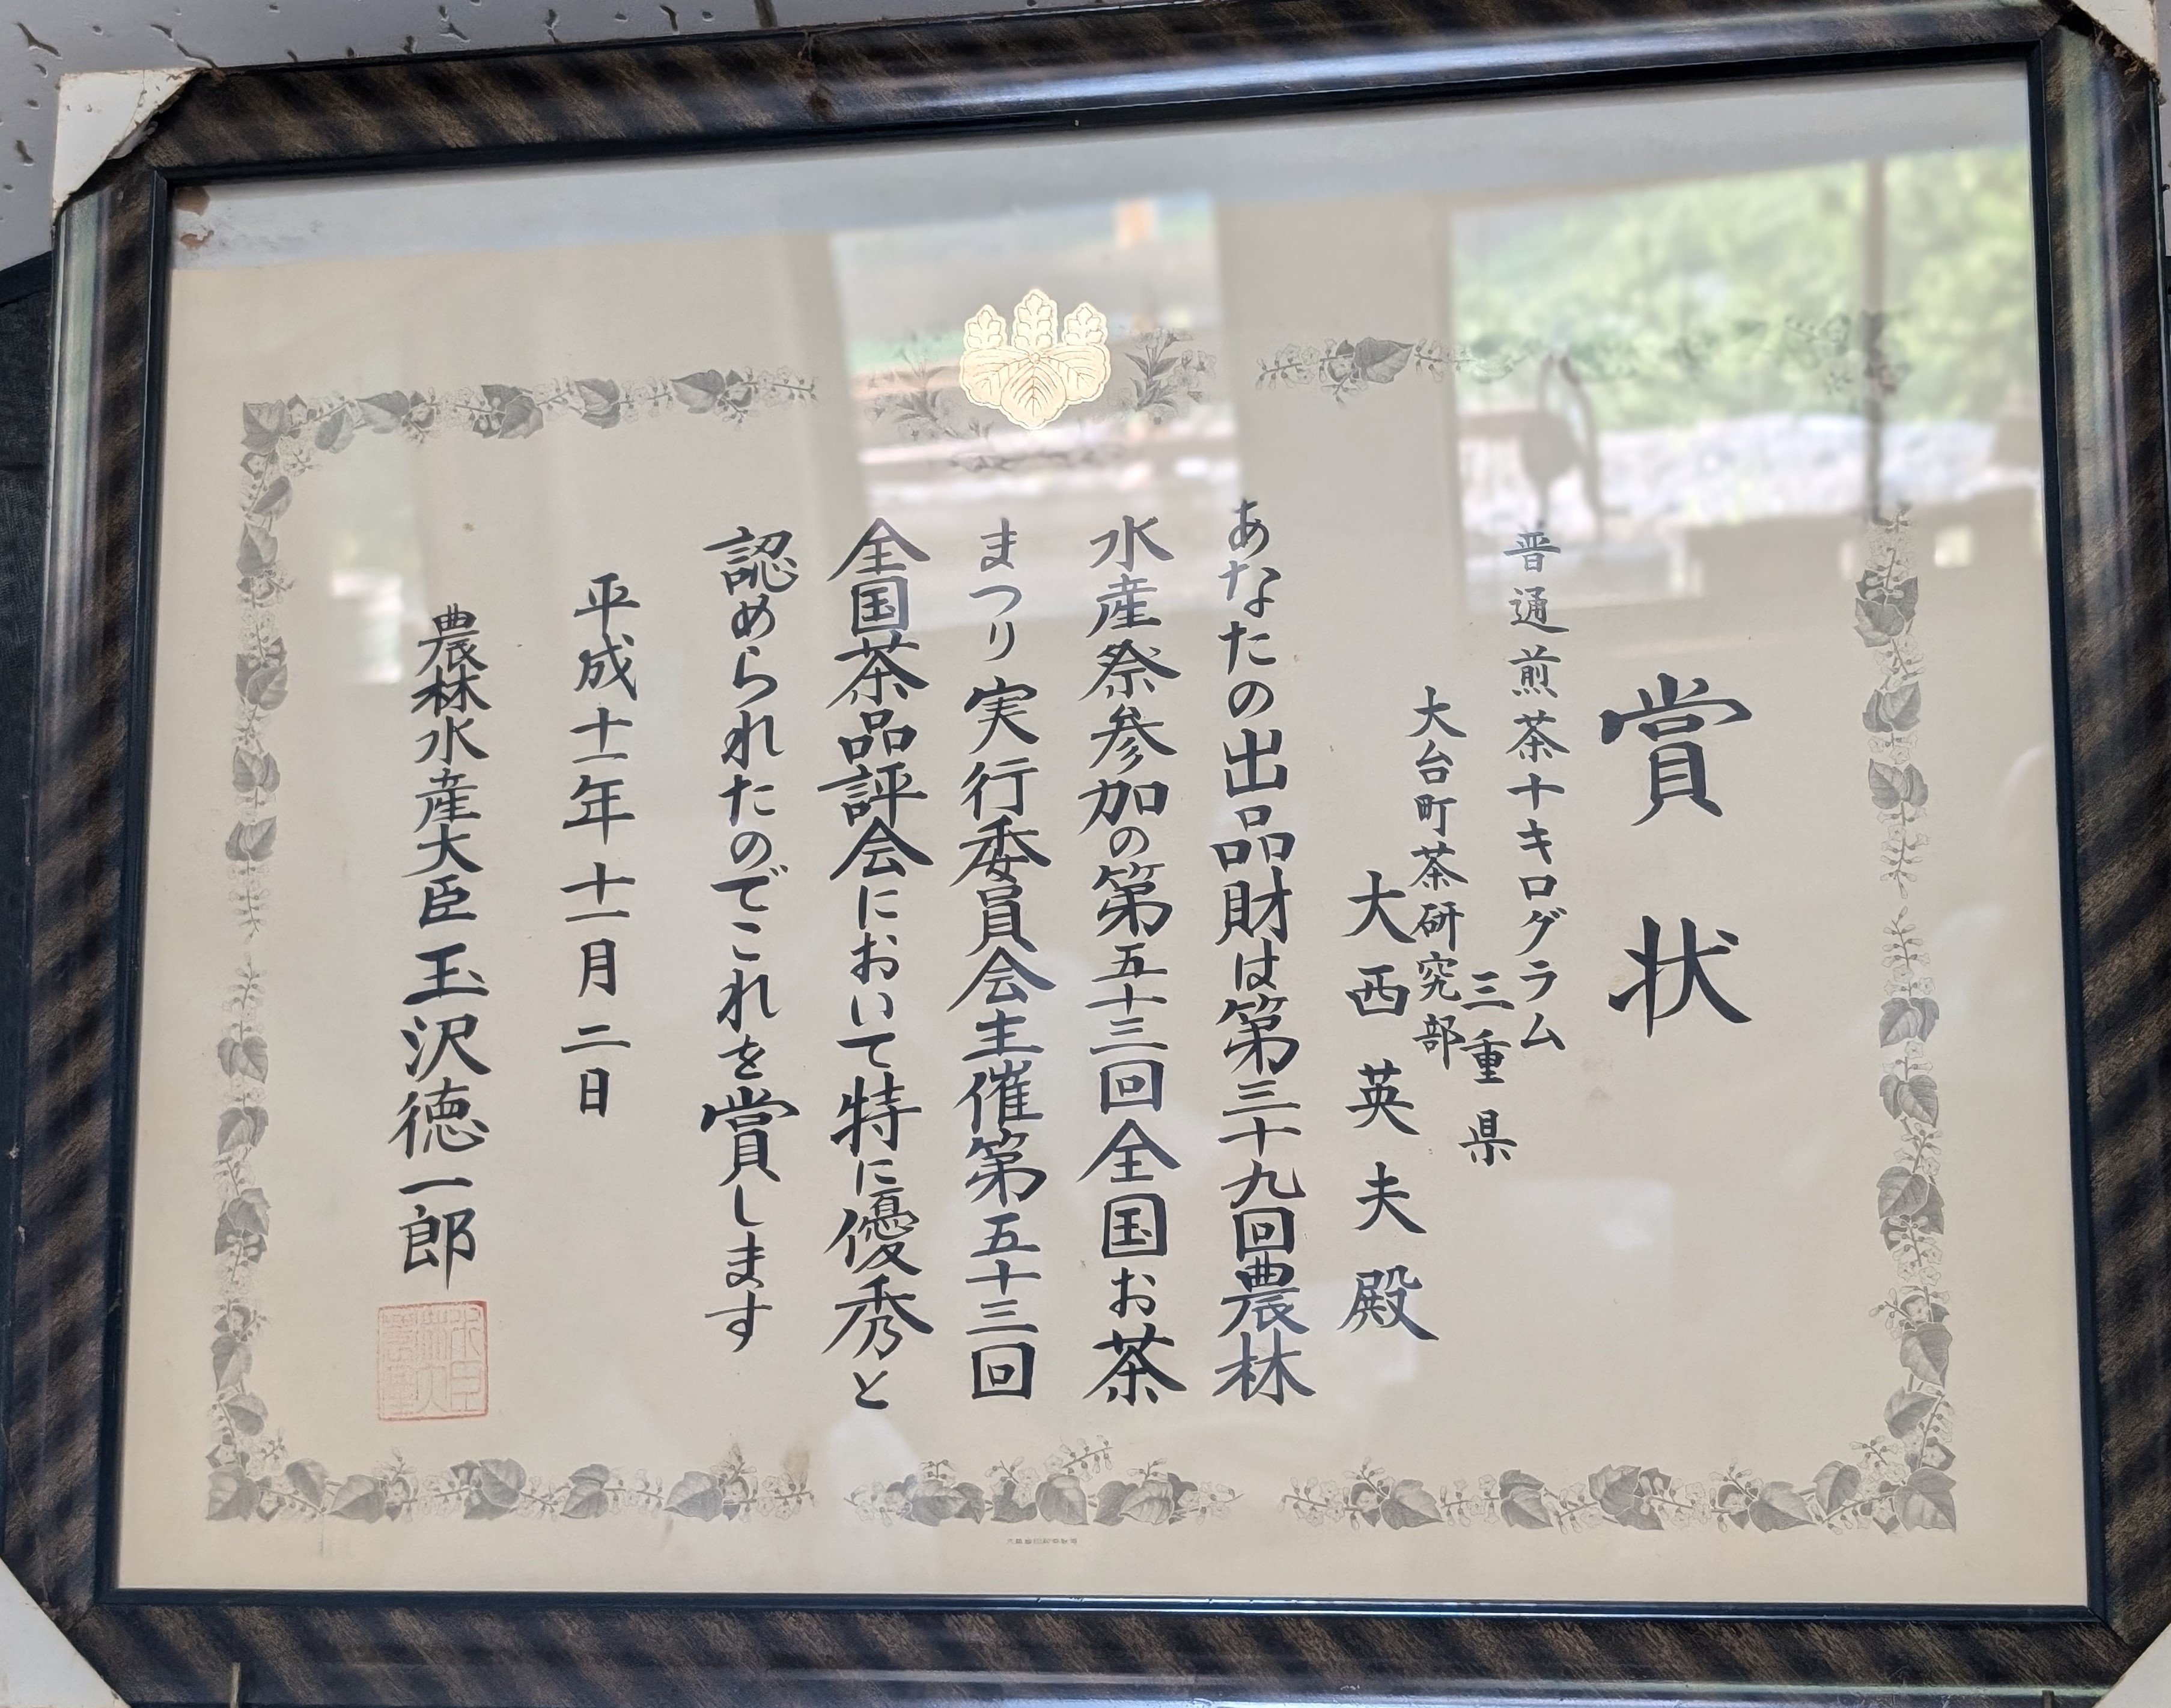 賞状
普通煎茶十キログラム
三重県
大台町茶研究部
大西英夫殿
あなたの出品財は第三十九回農林
水産祭参加の第五十三回全国お茶
まつり実行委員会主催第五十三回
全国茶品評会において特に優秀と
認められたのでこれを賞します
平成十一年十一月二日
農林水産大臣玉沢徳一郎